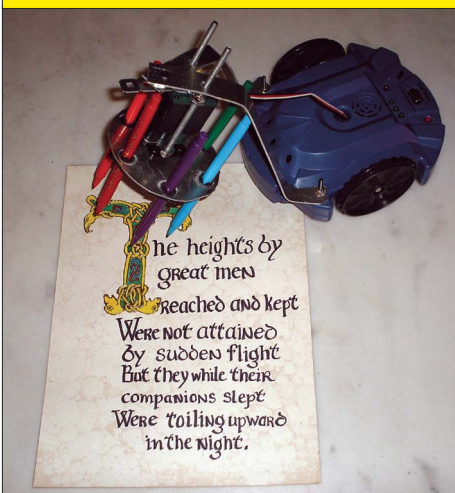 The heights by
great men
reached and kept
Were not attained
by sudden flight
But they while their
companions slept
Were toiling upward
in the night.